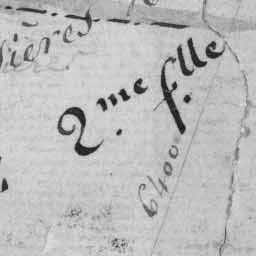 ières
2.me f.lle
6400